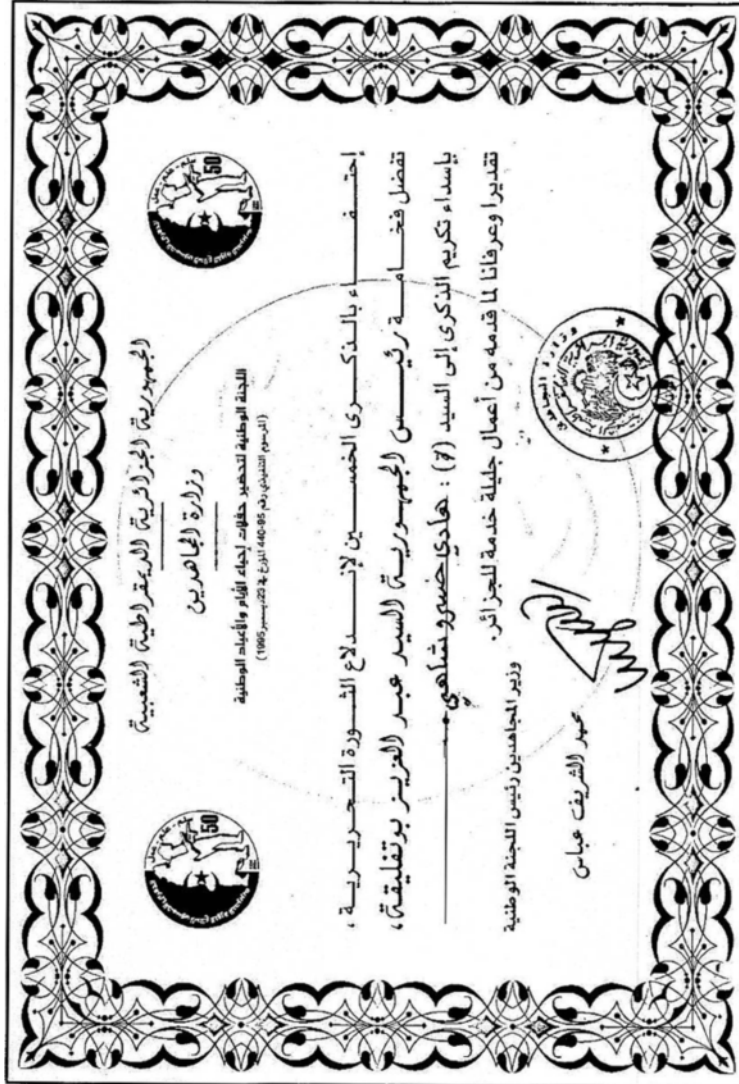 الجمهورية الجزائرية الديمقراطية الشعبية
وزارة المجاهدين
اللجنة الوطنية لتحضير حفلات إحياء الأيام والأعياد الوطنية
(المرسوم التنفيذي رقم 95-440 المؤرخ في 23 ديسمبر 1995)
50
50
إحتفاء بالذكرى الخمسين لإندلاع الثورة التحريرية،
تفضل فخامة رئيس الجمهورية السيد عبد العزيز بوتفليقة،
بإسداء تكريم الذكرى إلى السيد (ة) : هادي خسرو شاهي
تقديرا وعرفانا لما قدمه من أعمال جليلة خدمة للجزائر.
وزير المجاهدين رئيس اللجنة الوطنية
محمد الشريف عباس
وزارة المجاهدين